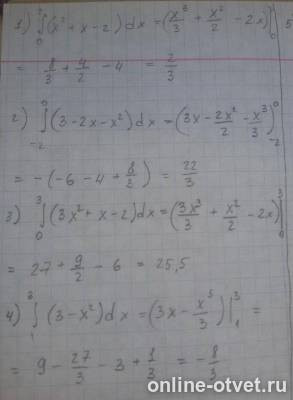 1) ∫₀² (x² + x - 2) dx = (x³/3 + x²/2 - 2x)|₀² 5
= 8/3 + 4/2 - 4 = 2/3
2) ∫₋₂⁰ (3 - 2x - x²) dx = (3x - 2x²/2 - x³/3)|₋₂⁰
= -(-6 - 4 + 8/2) = 22/3
3) ∫₀³ (3x² + x - 2) dx = (3x³/3 + x²/2 - 2x)|₀³
= 27 + 9/2 - 6 = 25,5
4) ∫₁³ (3 - x²) dx = (3x - x³/3)|₁³ =
= 9 - 27/3 - 3 + 1/3 = -8/3
online-otvet.ru